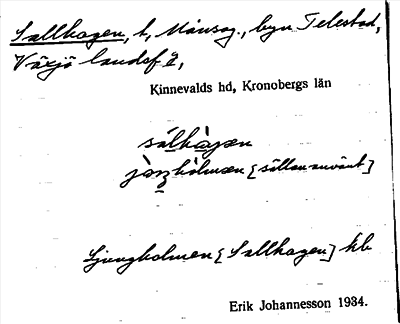 Sallhagen, t, Månsag., byn Telestad,
Växjö landsf å,
Kinnevalds hd, Kronobergs län
sálhàgen
hólmen [sällan använt]
Ljungholmen [Sallhagen] kb
Erik Johannesson 1934.